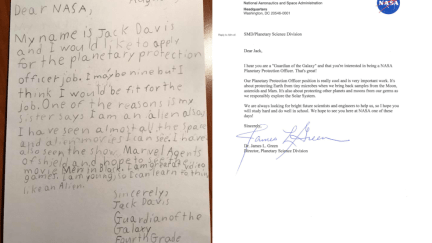 Dear NASA,
My name is Jack Davis
and I would like to apply
for the planetary protection
officer job. I may be nine but I
think I would be fit for the
job. One of the reasons is my
sister says I am an alien also
I have seen almost all the space
and alien movies I can see. I have
also seen the show Marvel Agents
of Shield and hope to see the
movie Men in Black. I am great at video
games. I am young, so I can learn to think
like an Alien.
Sincerely,
Jack Davis
Guardian of the
Galaxy
Fourth Grade
National Aeronautics and Space Administration
Headquarters
Washington, DC 20546-0001
NASA
SMD/Planetary Science Division
Dear Jack,
I hear you are a "Guardian of the Galaxy" and that you're interested in being a NASA
Planetary Protection Officer. That's great!
Our Planetary Protection Officer position is really cool and is very important work. It's
about protecting Earth from tiny microbes when we bring back samples from the Moon,
asteroids and Mars. It's also about protecting other planets and moons from our germs as
we responsibly explore the Solar System.
We are always looking for bright future scientists and engineers to help us, so I hope you
will study hard and do well in school. We hope to see you here at NASA one of these
days!
Sincerely,
James L Green
Dr. James L. Green
Director, Planetary Science Division